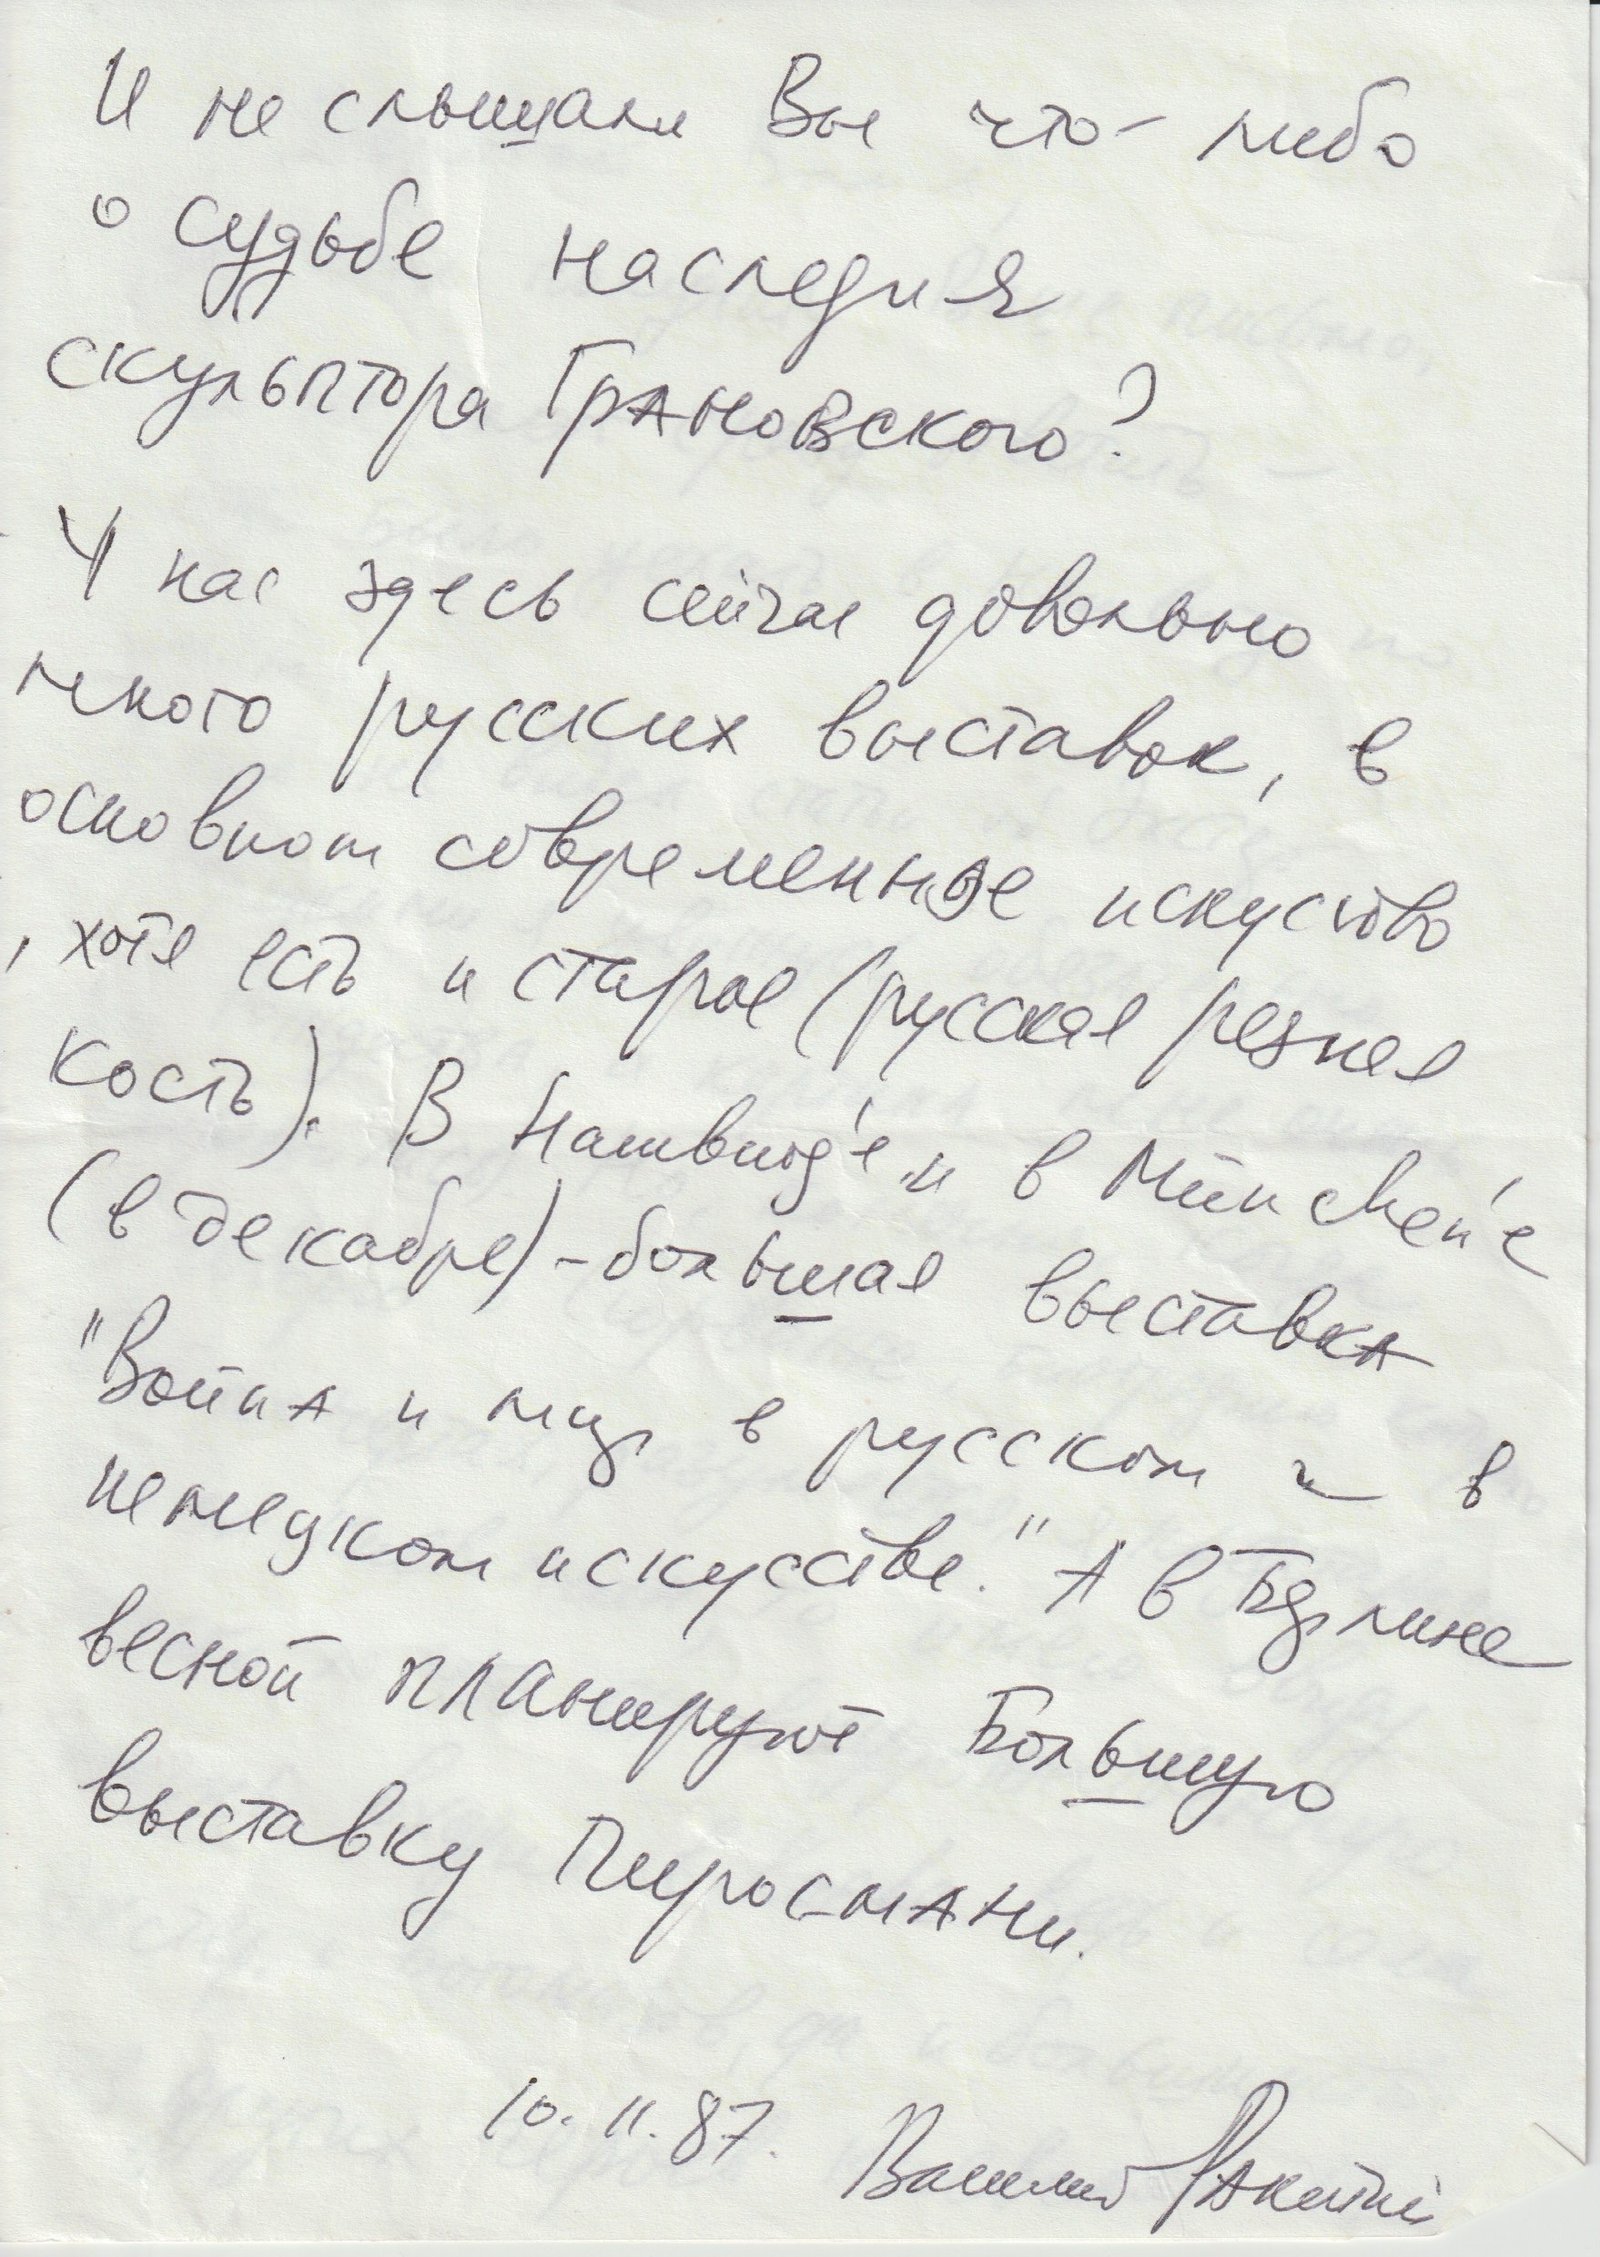 И не слышали Вы что-либо
о судьбе наследия
скульптора Грановского?
У нас здесь сейчас довольно
много русских выставок, в
основном современное искуство
, хотя есть и старое (русская резная
кость). В Hamburg'е и в München'е
(в декабре) - большая выставка
"Война и мир в русском и в
немецком искусстве." А в Берлине
весной планируют Большую
выставку Пиросмани.
10.11.87. Василий Ракитин